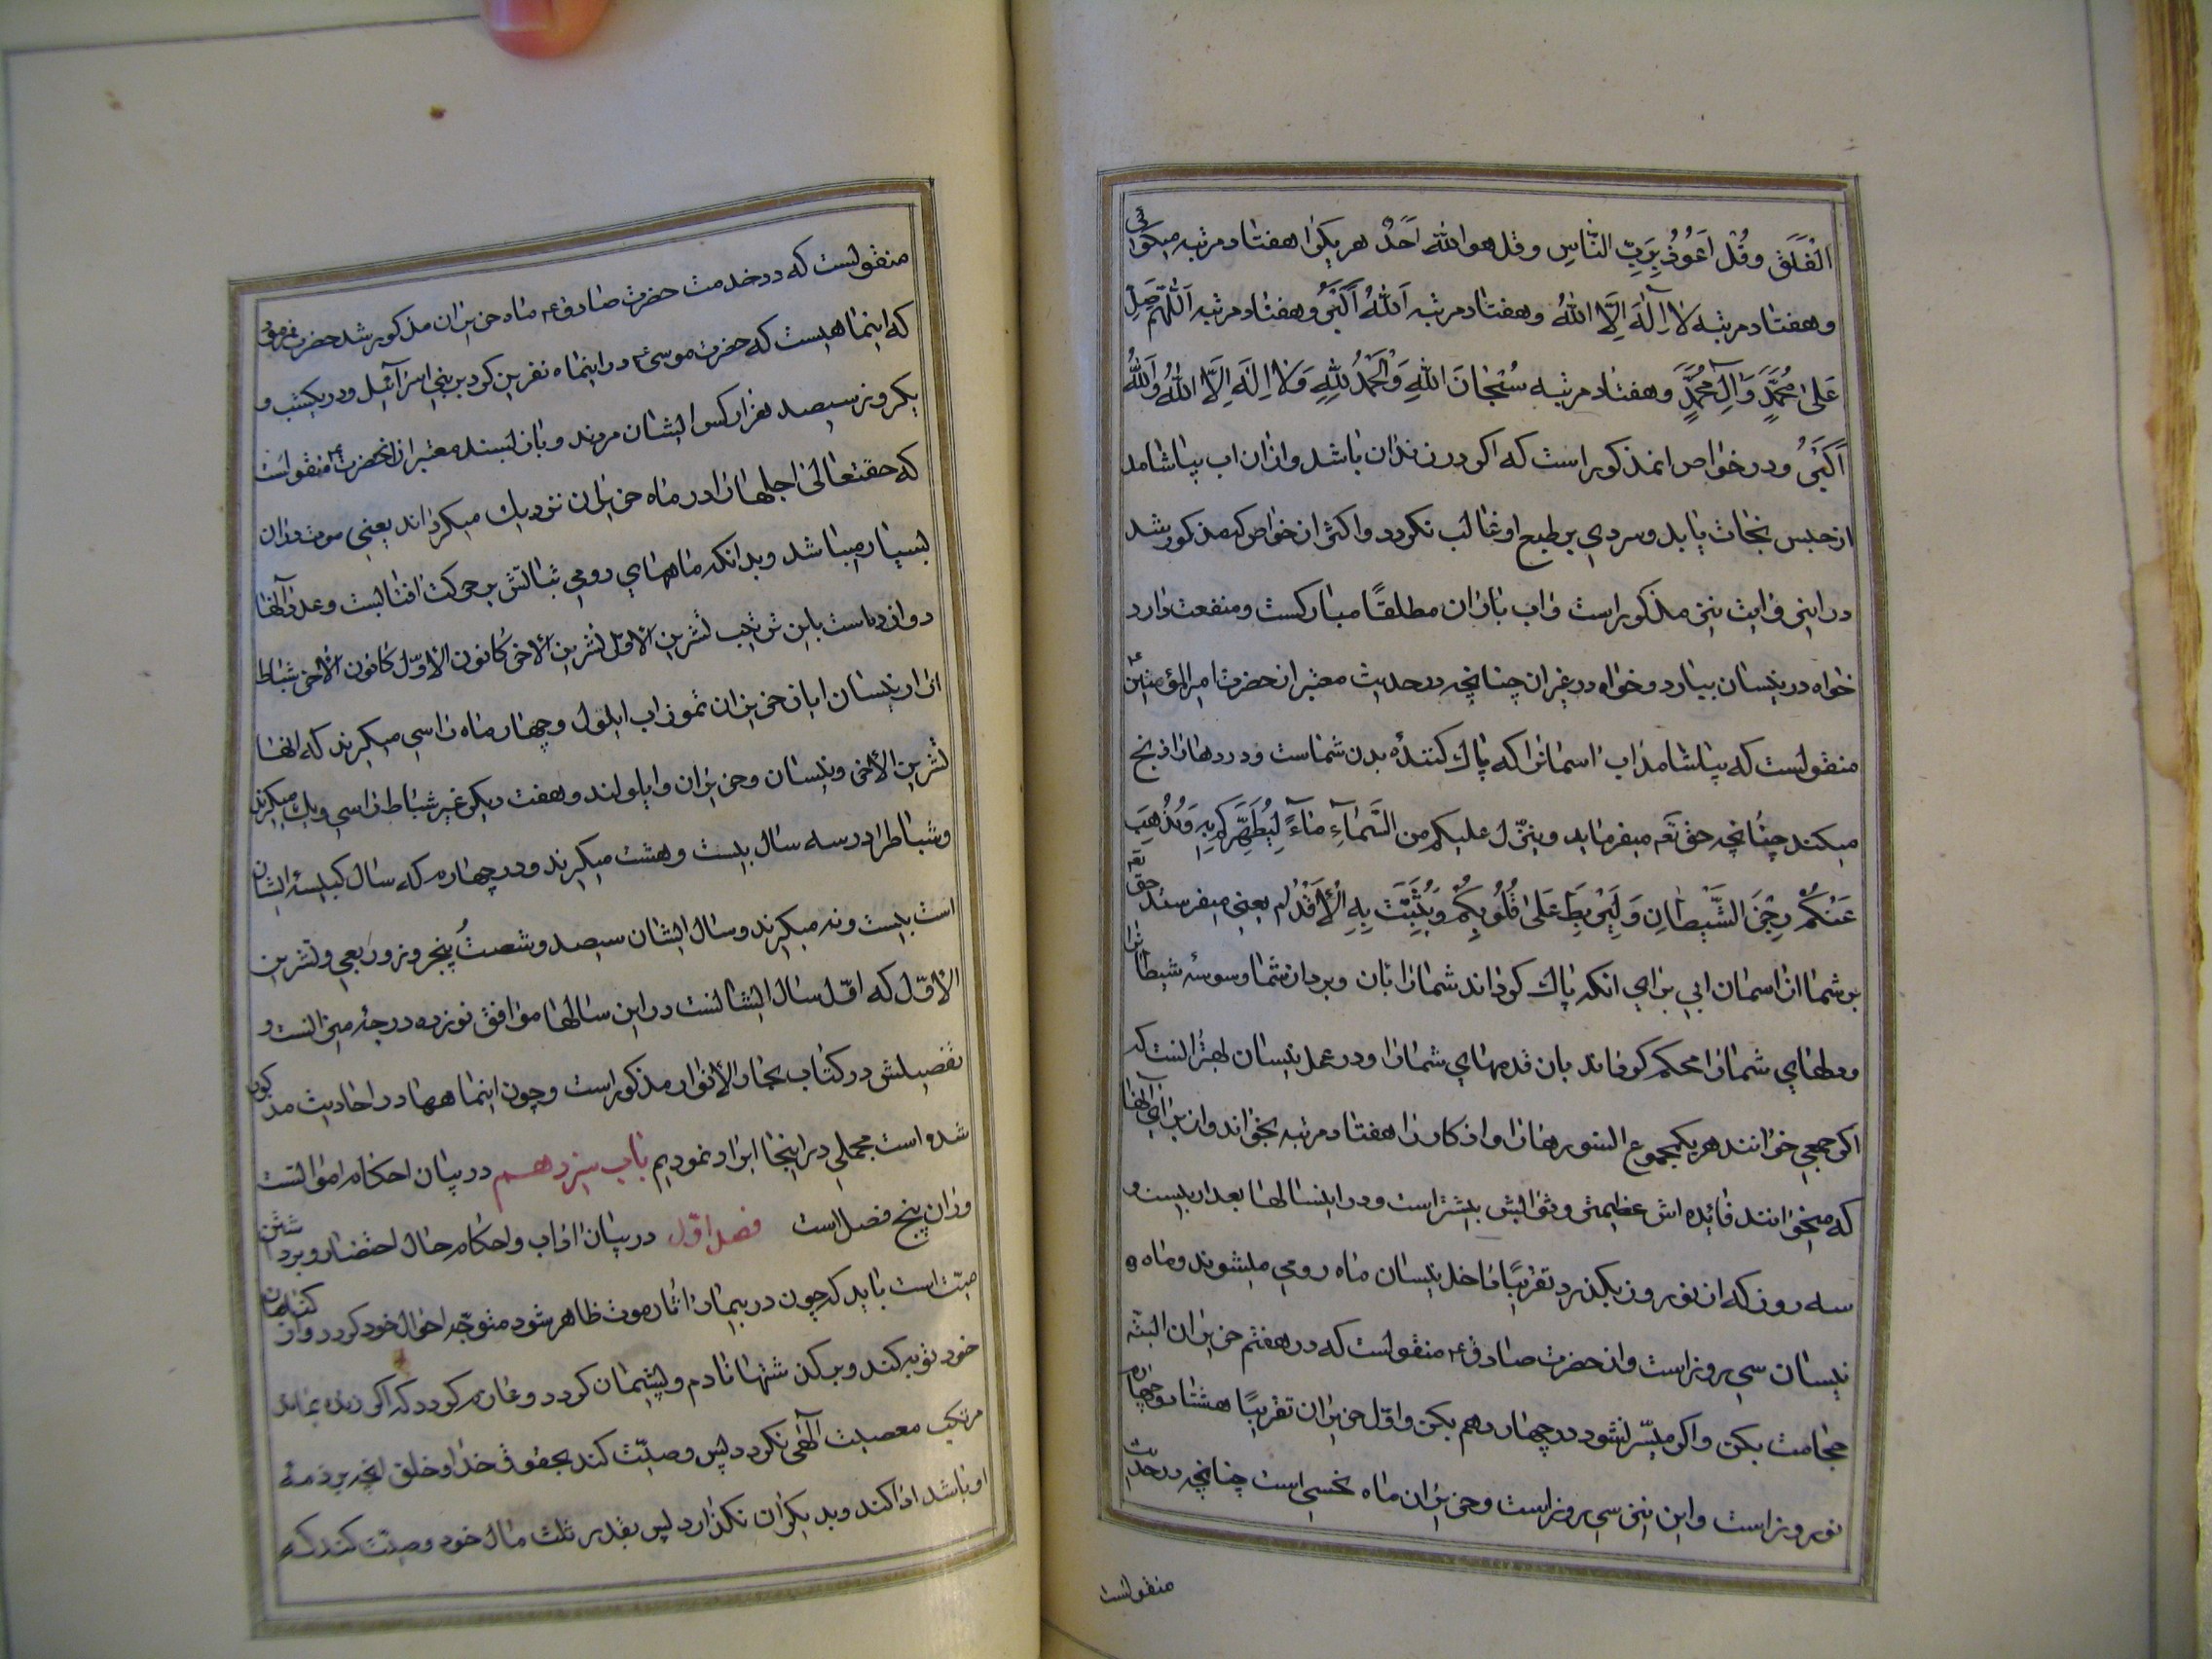 الْفَلَق وقُلْ اَعُوُذُ بِرَبِّ النّاسِ وقل هو اللّه اَحَدٌ هر يكرا هفتاد مرتبه ميكوئى
وهفتاد مرتبه لا اِلٰهَ اِلَّا اللّٰهُ وهفتاد مرتبه اَللّٰهُ اَكْبَرُ وهفتاد مرتبه اَللّٰهُمَّ صَلِّ
عَلىٰ مُحَمَّدٍ وَاٰلِ مُحَمَّدٍ وهفتاد مرتبه سُبْحٰانَ اللّٰهِ وَالْحَمْدُ لِلّٰهِ وَلا اِلٰهَ اِلاَّ اللّٰهُ وَاللّٰهُ
اَكْبَرُ ودر خواص انمذكور است كه اكر در زندان باشد وازان اب بياشامد
از حبس نجات يابد وسردي بر طبع او غالب نكردد واكثر ان خواص كه مذكور شد
در اينروايت نيز مذكور است واب باران مطلقًا مباركست ومنفعت دارد
خواه در نيسان ببارد وخواه در غيران چنانچه در حديث معتبر از حضرت امير المؤمنين ع
منقولست كه بياشاميد اب اسمانرا كه پاك كنندۀ بدن شماست ودردهارا دفع
ميكند چنانچه حق تعم ميفرمايد وينزّل عليكم من السَّمآءِ مآءً لِيُطَهِّرَكُمْ بِهِ وَيُذْهِبَ
عَنْكُمْ رِجْزَ الشَّيْطٰانِ وَلِيَرْبِطَ عَلىٰ قُلُوُبِكُمْ وَيُثَبِّتَ بِهِ الْأَقْدامَ يعني ميفرستد حق تعم
بر شما از اسمان ابي براي انكه پاك كرداند شمارا بان وبردارد از شما وسوسۀ شيطانرا
ودلهاي شمارا محكم كرداند بان قدمهاي شمارا ودر عمل نيسان بهتر انست كه
اكر جمعي خوانند هر يك مجموع السورها را واذكار را هفتاد مرتبه بخوانند واز براي انها
كه ميخوانند فائده اش عظيمتر وثوابش بيشتر است ودر اينسالها بعد از بيست و
سه روز كه از نوروز بكذرد تقريبًا داخل نيسان ماه رومي ميشوند وماه
نيسان سي روز است واز حضرت صادق ع منقولست كه در هفتم حزيران البته
حجامت بكن واكر ميسّر نشود در چهاردهم بكن واوّل حزيران تقريبًا هشتاد وچهارم
نوروز است واين نيز سي روز است وحزيران ماه نحسي است چنانچه در حديث
منقولست
منقولست كه در خدمت حضرت صادق ع ماه حزيران مذكور شد حضرت فرمود
كه اينماهيست كه حضرت موسى ع در اينماه نفرين كرد بر بني اسرآئيل ودر يكشب و
يكروز سيصد هزار كس ايشان مردند وباز بسند معتبر از انحضرت ع منقولست
كه حقتعالى اجلهارا در ماه حزيران نزديك ميكرداند يعني موت دران
بسيار ميباشد وبدانكه ماههاي رومي بنايش بر حركت افتابست وعدد انها
دوازده است باين ترتيب تشرين الاوّل تشرين الآخر كانون الاوّل كانون الآخر شباط
اذار نيسان ايار حزيران تموز اب ايلول وچهار ماه را سي ميكيرند كه انها
تشرين الأخر ونيسان وحزيران وايلولند وهفت ديكر غير شباط را سي ويك ميكيرند
وشباط را در سه سال بيست وهشت ميكيرند ودر چهارم كه سال كبيسۀ ايشان
است بيست ونه ميكيرند وسال ايشان سيصد وشصت وپنجروز وربعي وتشرين
الاوّل كه اوّل سال ايشانست در اين سالها موافق نوزده درجۀ ميزانست و
تفصيلش در كتاب بحار الأنوار مذكور است وچون اينماهها در احاديث مذكور
شده است مجملي در اينجا ايراد نموديم باب سيزدهم در بيان احكام امواتست
ودران پنج فصل است فصل اوّل در بيان اداب واحكام حال احتضار ومردن
ميّت است بايد كه چون در بيمار اثار موت ظاهر شود متوجّه احوال خود كردد واز كناهان
خود توبه كند وبر كذشتها نادم وپشيمان كردد وعازم كردد كه اكر زنده بماند
مرتكب معصيت آلٓهى نكردد پس وصيّت كند بحقوق خدا وخلق انچه بر ذمّه
او باشد ادا كند وبديكران نكذارد پس بقدر ثلث مال خود وصيّت كند كه